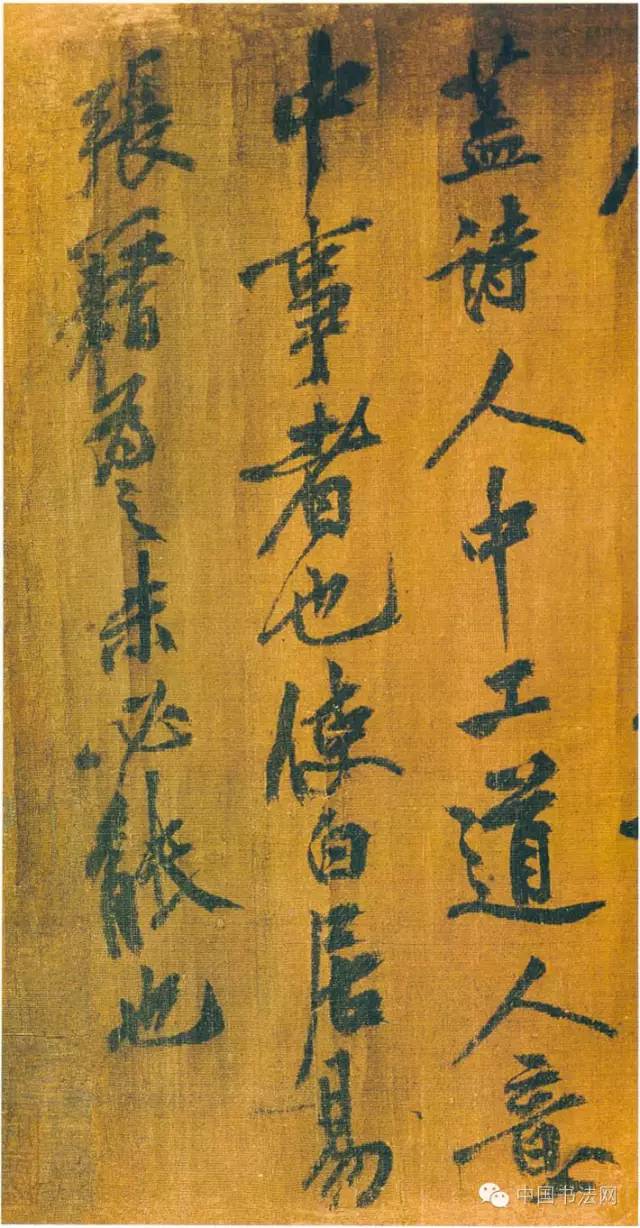 蓋詩人中工道人意
中事者也使白居易
張籍為之未必能也
中国书法网